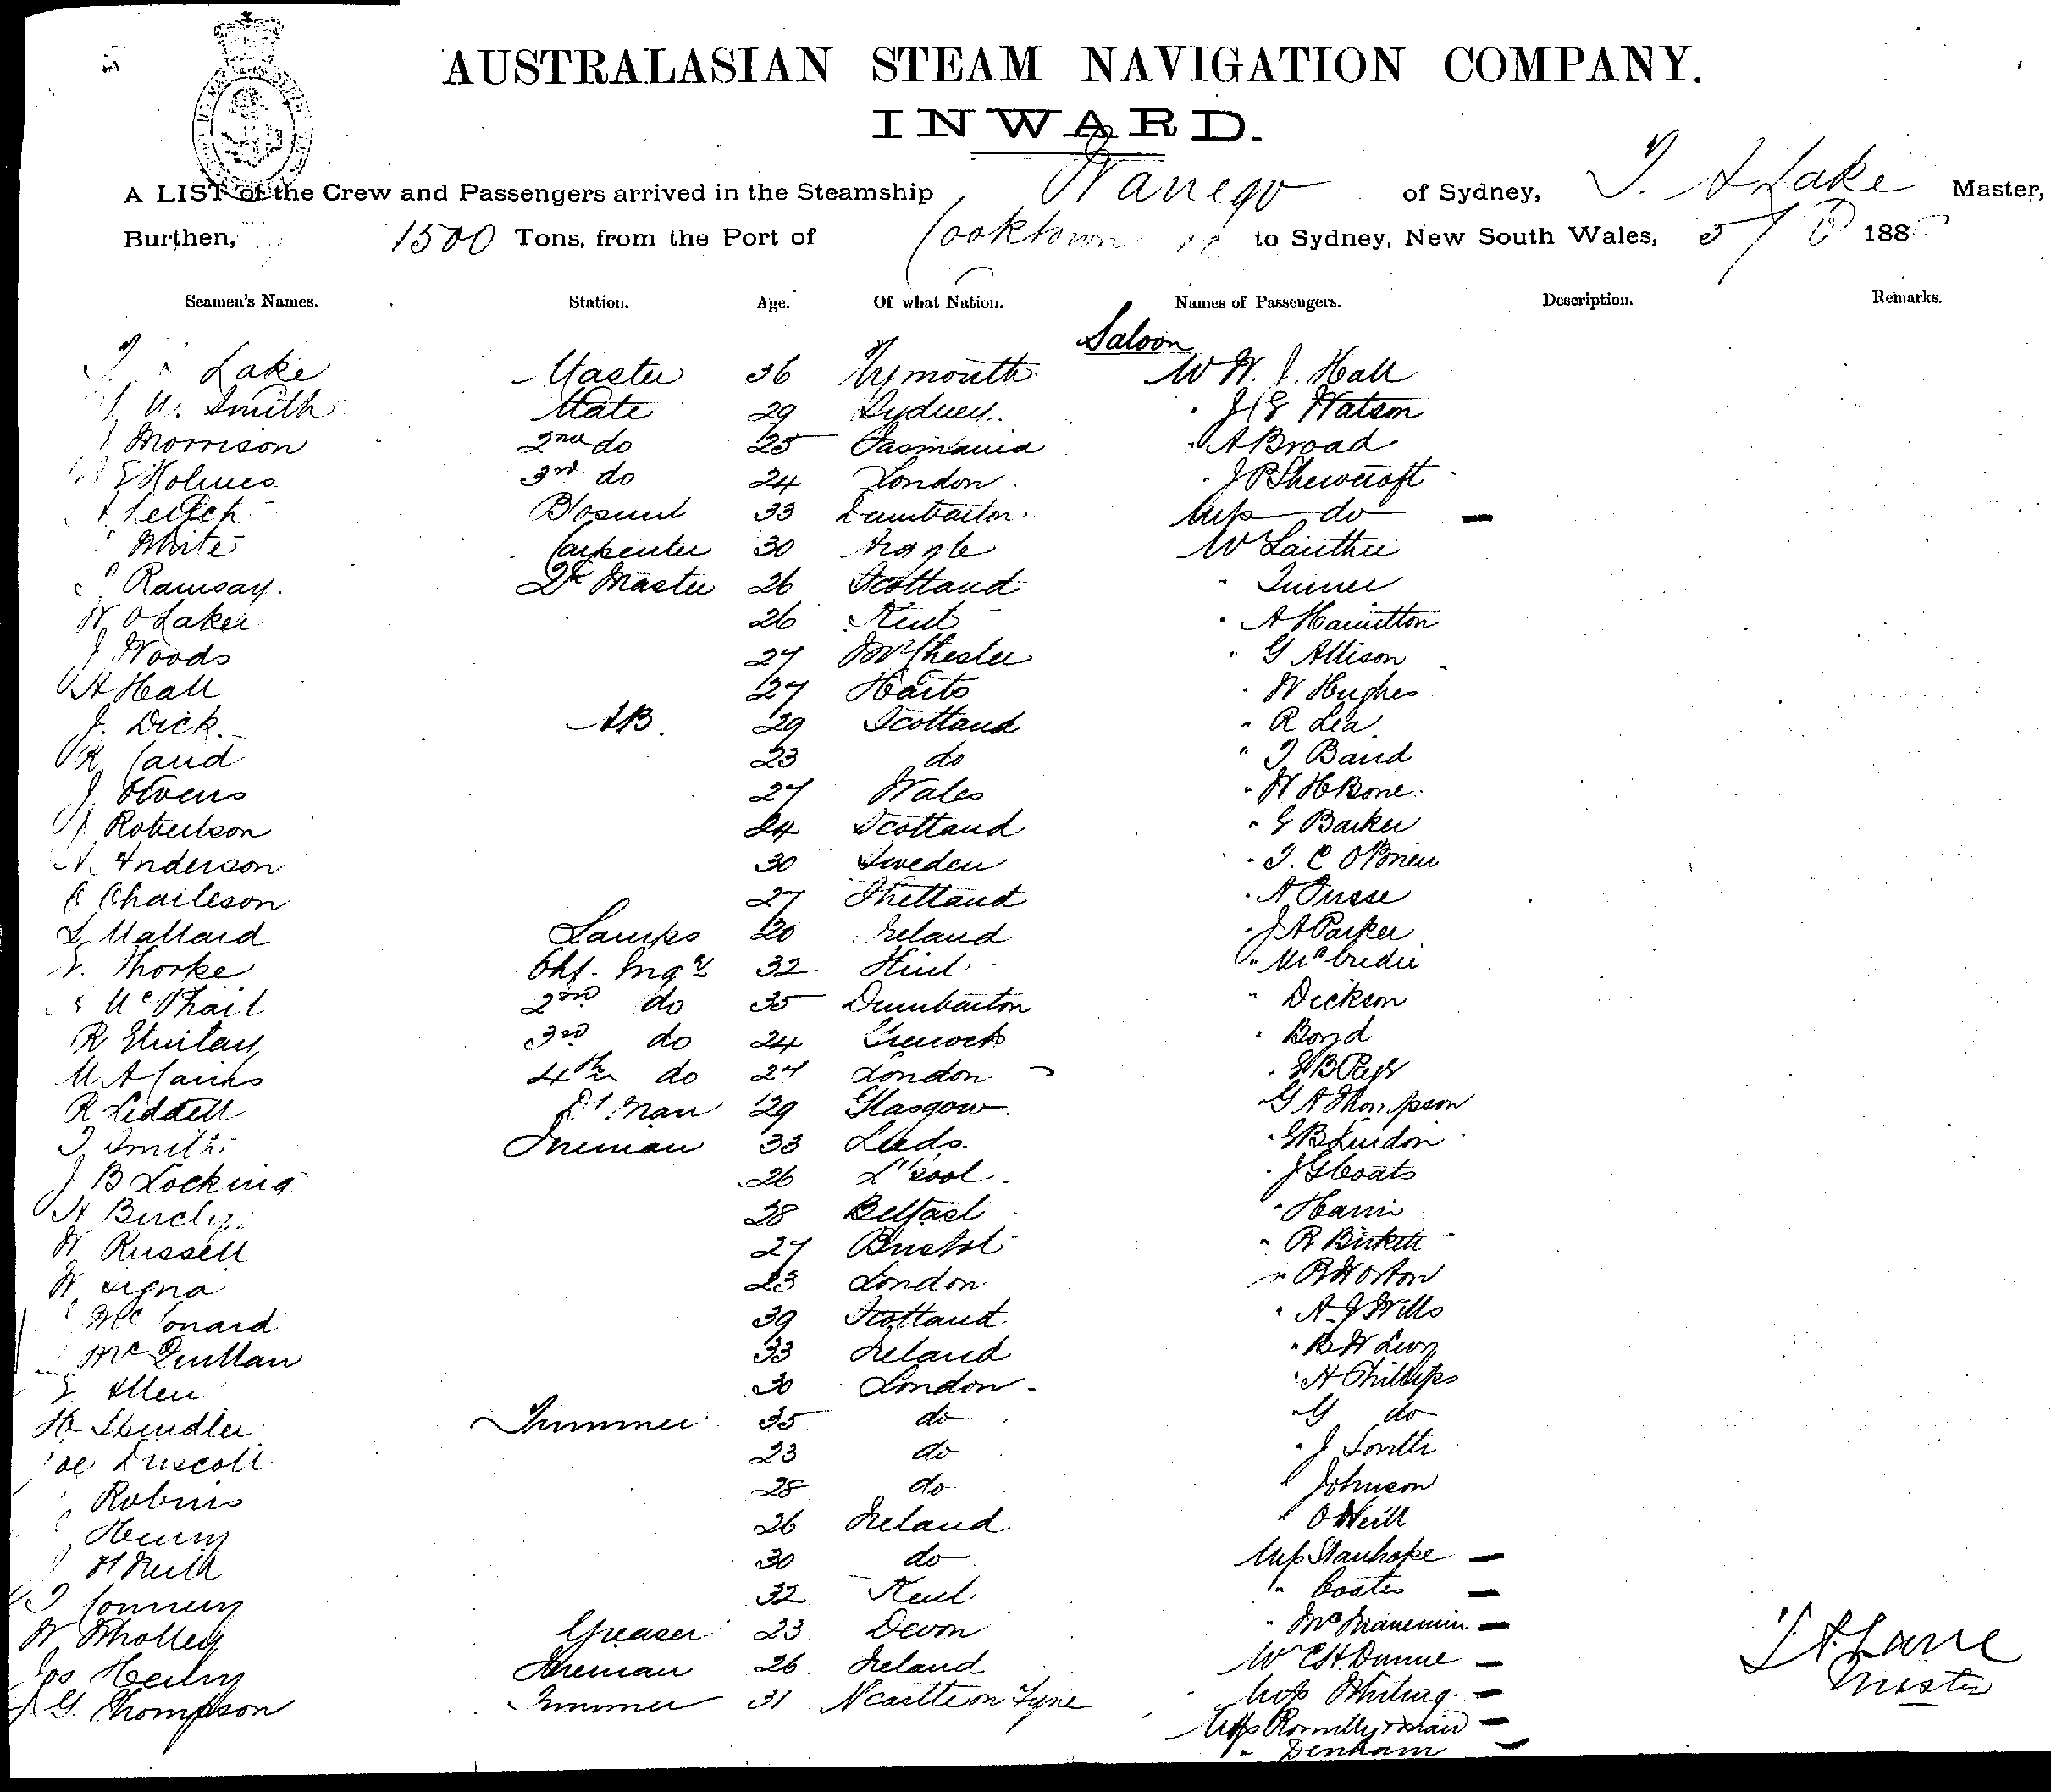 AUSTRALASIAN STEAM NAVIGATION COMPANY.
INWARD.
A LIST of the Crew and Passengers arrived in the Steamship Warrego of Sydney, T. A Lake Master,
Burthen, 1500 Tons, from the Port of Cooktown to Sydney, New South Wales, 5/ 188
Seamen's Names. Station. Age. Of what Nation. Names of Passengers. Description. Remarks.
Saloon
Lake Master 36 Plymouth Mr W. J. Hall
Smith Mate 29 Sydney " J E Watson
Morrison 2nd do 25 Tasmania " A Broad
E Holmes 3rd do 24 London " J B Shewcroft
Leitch Bosun 33 Dumbarton Mrs do
White Carpenter 30 Argyle Mr
Ramsay 26 Scotland " Turner
W O Laker 26 Kent " A Hamilton
J Woods 27 " G Allison
A Hall 27 Harts " W Hughes
J. Dick AB. 29 Scotland " R Lea
R Cand 23 do " T Band
J. Owens 27 Wales " W H Bone
Robertson 24 Scotland " E Barker
Anderson 30 Sweden " T. C O'Brien
C Charleson 27 Shetland " A
L Mallard Lamps 20 Ireland " J A Parker
Thorke Chf. Engr 32 " McCredie
McPhail 2nd do 35 Dumbarton " Dickson
R 3rd do 24 Greenock " Boyd
M A Cairns 4th do 27 London
R Liddell Dk Man 29 Glasgow " G A Thompson
T Smith Fireman 33 Leeds " E B Lindon
J B Locking 26 L'pool " J G Coats
H 28 Belfast
W Russell 27 Bristol " R Birkett
W 23 London
Mc Conard 39 Scotland " A J Wills
Mc Quillan 33 Ireland " B W Levy
E Allen 30 London " H Phillips
H Spindler Trimmer 35 do " G do
Driscoll 23 do " J South
Robins 28 do " Johnson
Henry 26 Ireland " O'Neill
30 do Mrs Stanhope
T Connery 32 Kent " Coates
W Wholley Greaser 23 Devon " McManemin
Jos Fireman 26 Ireland Mr C H Dunne
G. Thompson Trimmer 31 N castle on Tyne Mrs Whiting
Mrs Romilly & maid
" Denham
Master